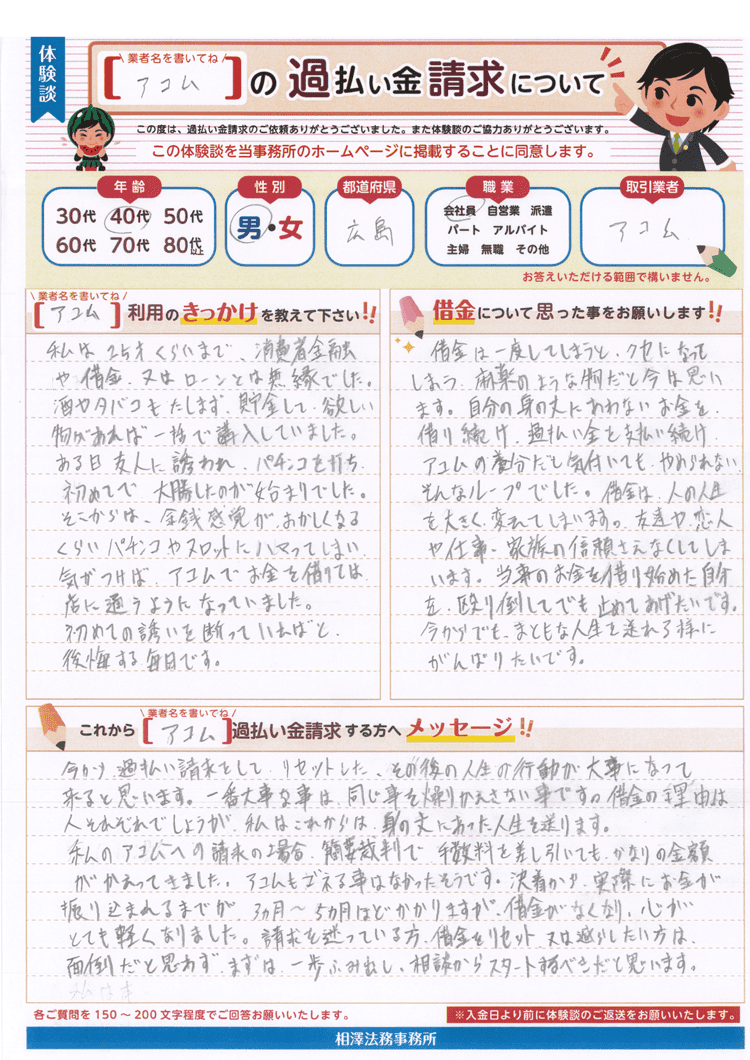 体験談
\ 業者名を書いてね /
[アコム]の過払い金請求について
この度は、過払い金請求のご依頼ありがとうございました。また体験談のご協力ありがとうございます。
この体験談を当事務所のホームページに掲載することに同意します。
年齢
30代 40代 50代
60代 70代 80代以上
性別
男・女
都道府県
広島
職業
会社員 自営業 派遣
パート アルバイト
主婦 無職 その他
取引業者
アコム
お答えいただける範囲で構いません。
\ 業者名を書いてね /
[アコム]利用のきっかけを教えて下さい!!
私は25才くらいまで、消費者金融
や借金、又はローンとは無縁でした。
酒やタバコもたしまず、貯金して、欲しい
物があれば一括で購入していました。
ある日友人に誘われ、パチンコを打ち、
初めてで大勝したのが始まりでした。
そこからは、金銭感覚がおかしくなる
くらいパチンコやスロットにハマってしまい、
気がつけば、アコムでお金を借りては、
店に通うようになっていました。
初めての誘いを断っていればと、
後悔する毎日です。
借金について思った事をお願いします!!
借金は一度してしまうと、クセになって
しまう、麻薬のような物だと今は思い
ます。自分の身の丈にあわないお金を、
借り続け、過払い金を支払い続け、
アコムの養分だと気付いても、やめられない、
そんなループでした。借金は、人の人生
を大きく変えてしまいます。友達や恋人
や仕事、家族の信頼さえなくしてしま
います。当時のお金を借り始めた自分
を、殴り倒してでも止めてあげたいです。
今からでも、まともな人生を送れる様に
がんばりたいです。
\ 業者名を書いてね /
これから[アコム]過払い金請求する方へメッセージ!!
今から過払い請求をして、リセットした、その後の人生の行動が大事になって
来ると思います。一番大事な事は、同じ事を繰りかえさない事です。借金の理由は
人それぞれでしょうが、私はこれからは、身の丈にあった人生を送ります。
私のアコムへの請求の場合、簡易裁判で、手数料を差し引いても、かなりの金額
がかえってきました。アコムもゴネる事はなかったそうです。決着から、実際にお金が
振り込まれるまでが、3ヵ月〜5ヵ月ほどかかりますが、借金がなくなり、心が
とても軽くなりました。請求を迷っている方、借金をリセット、又は減らしたい方は、
面倒だと思わず、まずは、一歩ふみ出し、相談からスタートするべきだと思います。
各ご質問を150〜200文字程度でご回答お願いいたします。
※入金日より前に体験談のご返送をお願いいたします。
相澤法務事務所